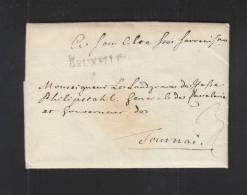 A Son Altesse Son Serenissime
BRUXELLES
Monseigneur Le Landgrave de Hesse
Philipsthal, General de Cavalerie
et Gouverneur de
Tournai